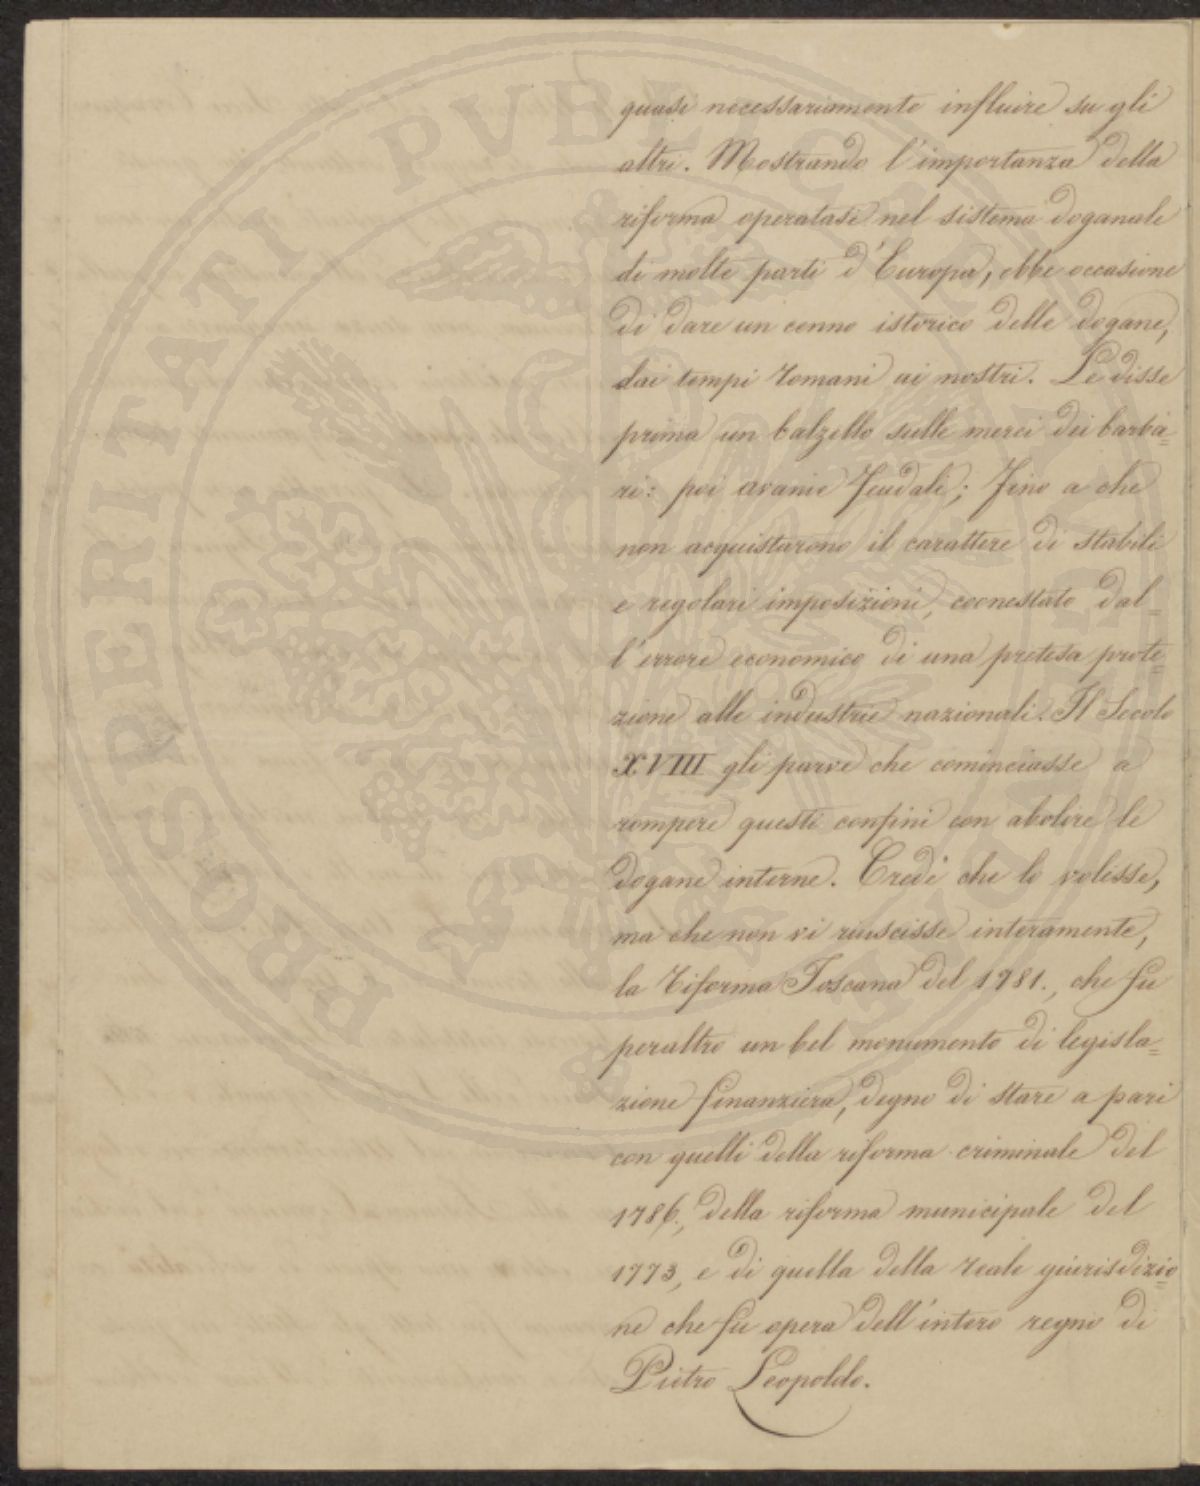 quasi necessariamente influire su gli
altri. Mostrando l'importanza della
riforma operatasi nel sistema doganale
di molte parti d'Europa, ebbe occasione
di dare un cenno istorico delle dogane,
dai tempi romani ai nostri. Le disse
prima un balzello sulle merci dei barba=
ri: poi avanie feudali; fino a che
non acquistarono il carattere di stabili
e regolari imposizioni, coonestato dal=
l'errore economico di una pretesa prote=
zione alle industrie nazionali. Il Secolo
XVIII gli parve che cominciasse a
rompere questi confini con abolire le
dogane interne. Credè che lo volesse,
ma che non vi riuscisse interamente,
la riforma Toscana del 1781., che fu
peraltro un bel monumento di legisla=
zione finanziera, degno di stare a pari
con quelli della riforma criminale del
1786., della riforma municipale del
1773, e di quella della reale giurisdizio=
ne che fu opera dell'intero regno di
Pietro Leopoldo.
PROSPERITATI PVBLICAE